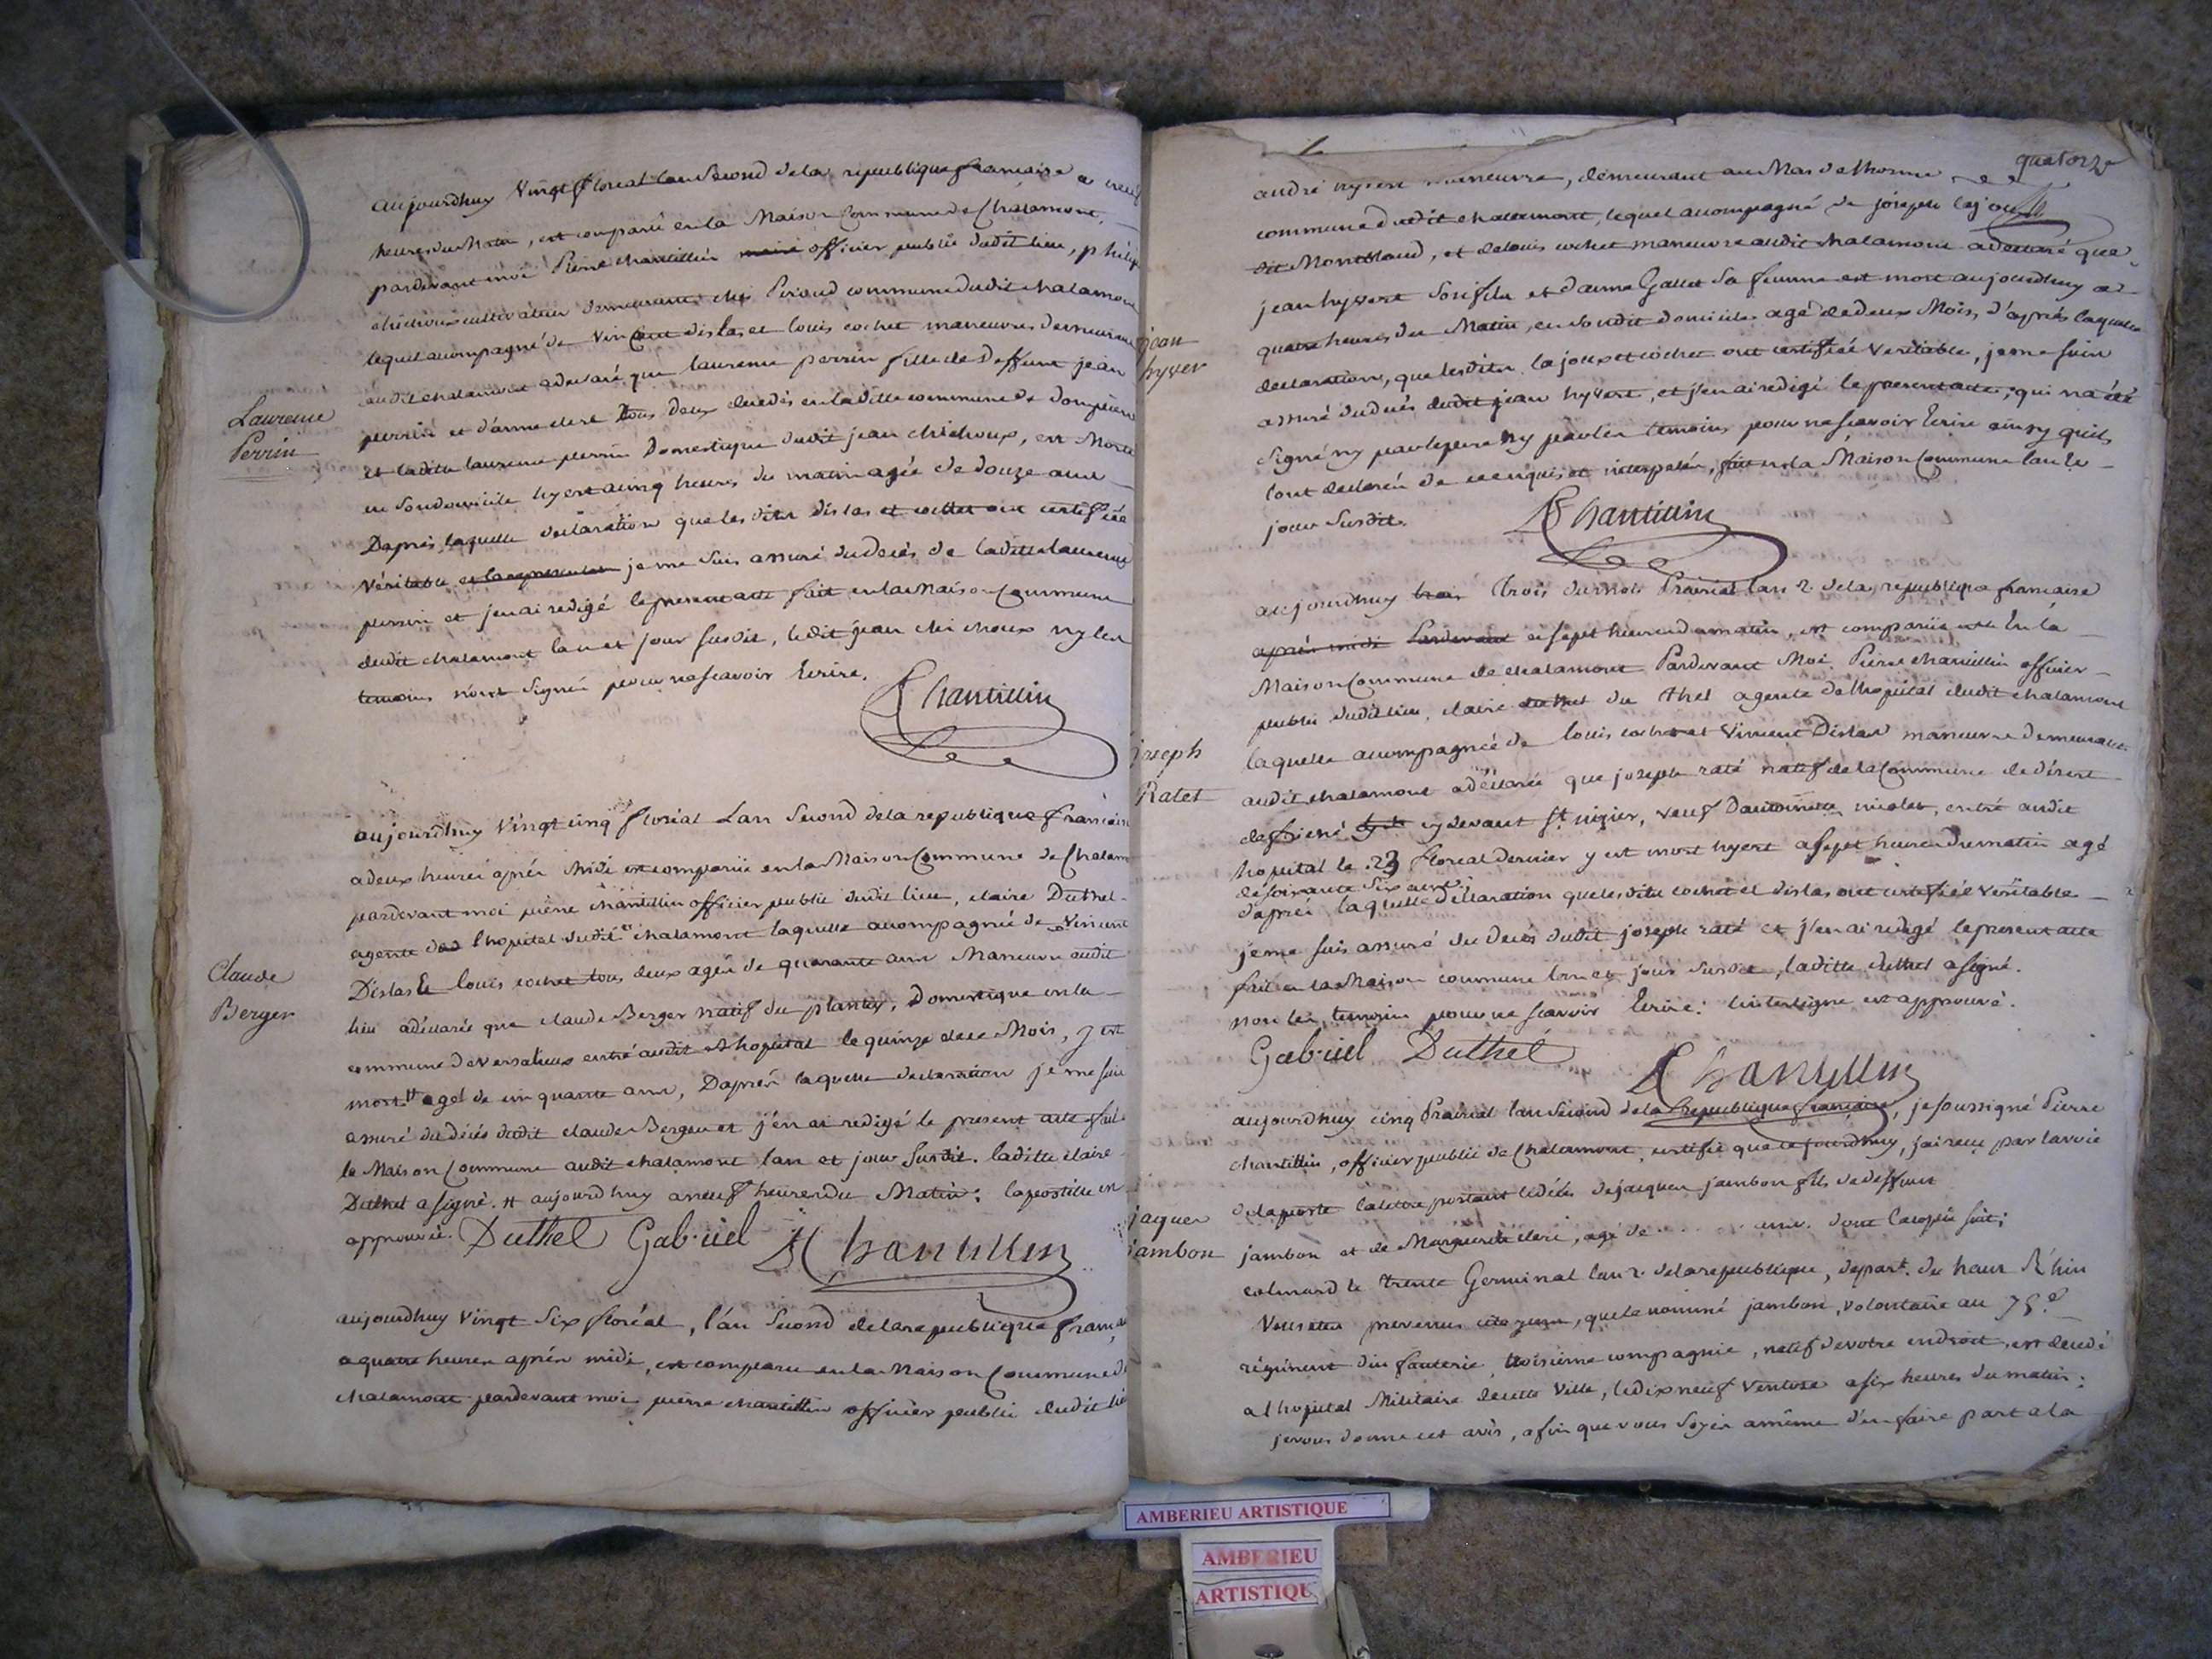 aujourdhuy vingt floreal lan second dela republique francaise a neuf
heures du Matin, est comparû en la Maison Commune de Chalamont,
pardevant moi Pierre chantillin maire officier public dudit lieu, philip
chichoux cultivateur demeurant chez Peroud commune dudit chalamont
lequel acompagné de Vincent dislas et louis cochet maneuvres demeurant
audit chalamont a declaré que laurence perrin fille de deffunt jean
perrin et d'anne clere tous deux decedés en la ditte commune de dompierre
et laditte laurence perrin Domestique dudit jean chichoux, est Morte
en son domicile hyert a cinq heures du matin agée de douze ans
Daprès laquelle declaration que les dits dislas et cochet ont certifiée
Véritable je me suis assuré du decès de laditte laurence
perrin et jenai redigé le present acte fait en la maison Commune
dudit chalamont lan et jour susdit, ledit jean chichoux ny les
temoins n'ont signés pour ne scavoir Ecrire.
Chantillin
Laurence
Perrin
aujourdhuy Vingt cinq floréal Lan Second dela republique francaise
a deux heures aprés Midi est comparüe en la Maison Commune de Chalam
pardevant moi pierre chantillin officier public dudit lieu, claire Duthel
agente de l'hopital dudit chalamont laquelle acompagnée de Vincent
Dislas & louis cochet tous deux agés de quarante ans Maneuvre audit
lieu a déclarée que claude Berger natif du plantay, Domestique en la
commune de Versalieux entré audit hopital le quinze de ce Mois, y est
mort # agé de cinquante ans, Daprés laquelle declaration je me suis
assuré du décés dudit claude Berger et j'en ai redigé le present acte fait
le Maison Commune audit chalamont lan et jour Susdit. laditte claire
Duthel a signé. # aujourdhuy a neuf heures du Matin; lapostille en
approuvée. Duthel Gabriel Chantillin
Claude
Berger
aujourdhuy Vingt Six floréal, l'an Second dela republique franca
a quatre heures aprés midi, est comparu en la Maison Commune de
chalamont pardevant moi pierre chantillin officier public dudit lieu
quatorze
andré hyvert maneuvre, demeurant au Mas de lhorme
commune dudit chalamont, lequel acompagné de joseph lajoux
dit Montbland, et de louis cochet maneuvre audit chalamont a declaré que
jean hyvert son fils et d'anne Gallet sa femme est mort aujourdhuy a
quatre heures du Matin, en sondit domicile agé de deux Mois, d'aprés laquelle
declaration, que lesdits lajoux et cochet ont certifiée Veritable, je me suis
assuré du decés dudit jean hyvert, et j'en ai redigé le present acte; qui na été
signé ny par le pere ny par les temoins pour ne scavoir Ecrire ainsy quils
lont declarés de ce enquis et interpelés, fait en la Maison Commune lan le
jour Susdit.
Chantillin
jean
hyver
aujourdhuy trois Trois du mois Prairial lan 2 dela republique francaise
aprés midi Pardevant a sept heures du matin, est comparüe En la
Maison Commune de chalamont Pardevant Moi Pierre chantillin officier
public dudit lieu, claire du thel agente de lhopital dudit chalamont
laquelle acompagnée de louis cochet et Vincent Dislas maneuvre demeurants
audit chalamont a déclarée que joseph raté natif de la Commune de désert
defriché cy devant St nizier, veuf dantoinette nicolas, entré audit
hopital le 23 floreal dernier y est mort hyert a sept heures du matin agé
de soixante six ans;
d'aprés laquelle déclaration que les dits cochet et dislas ont certifiée Veritable
je me suis assuré du decés dudit joseph raté et j'en ai redigé le present acte
fait en la Maison commune lan et jour Susdit, laditte duthel a signé.
non les temoins pour ne scavoir Ecrire: linterligne est approuvé.
Gabriel Duthel Chantillin
joseph
Ratet
aujourdhuy cinq Prairial lan second dela republique francaise, je soussigné Pierre
chantillin, officier public de Chalamont, certifie que ce jourdhuy, jai recu par la voie
dela poste la lettre portant le décés de jacques jambon fils de deffunt
jambon et de Marguerite clere, agé de . . . . . ans. dont la copie suit;
colmard le trente Germinal lan 2 dela republique, depart. du haut Rhin
Vous etes prevenus citoyens, que le nommé jambon, volontaire au 75e
régiment dinfanterie, troisieme compagnie, natif de votre endroit, est decedé
a lhopital Militaire de cette Ville, le dix neuf Ventose a six heures du matin;
je vous donne cet avis, afin que vous Soyés a même d'en faire part a la
jaques
jambon
AMBERIEU ARTISTIQUE
AMBERIEU
ARTISTIQU